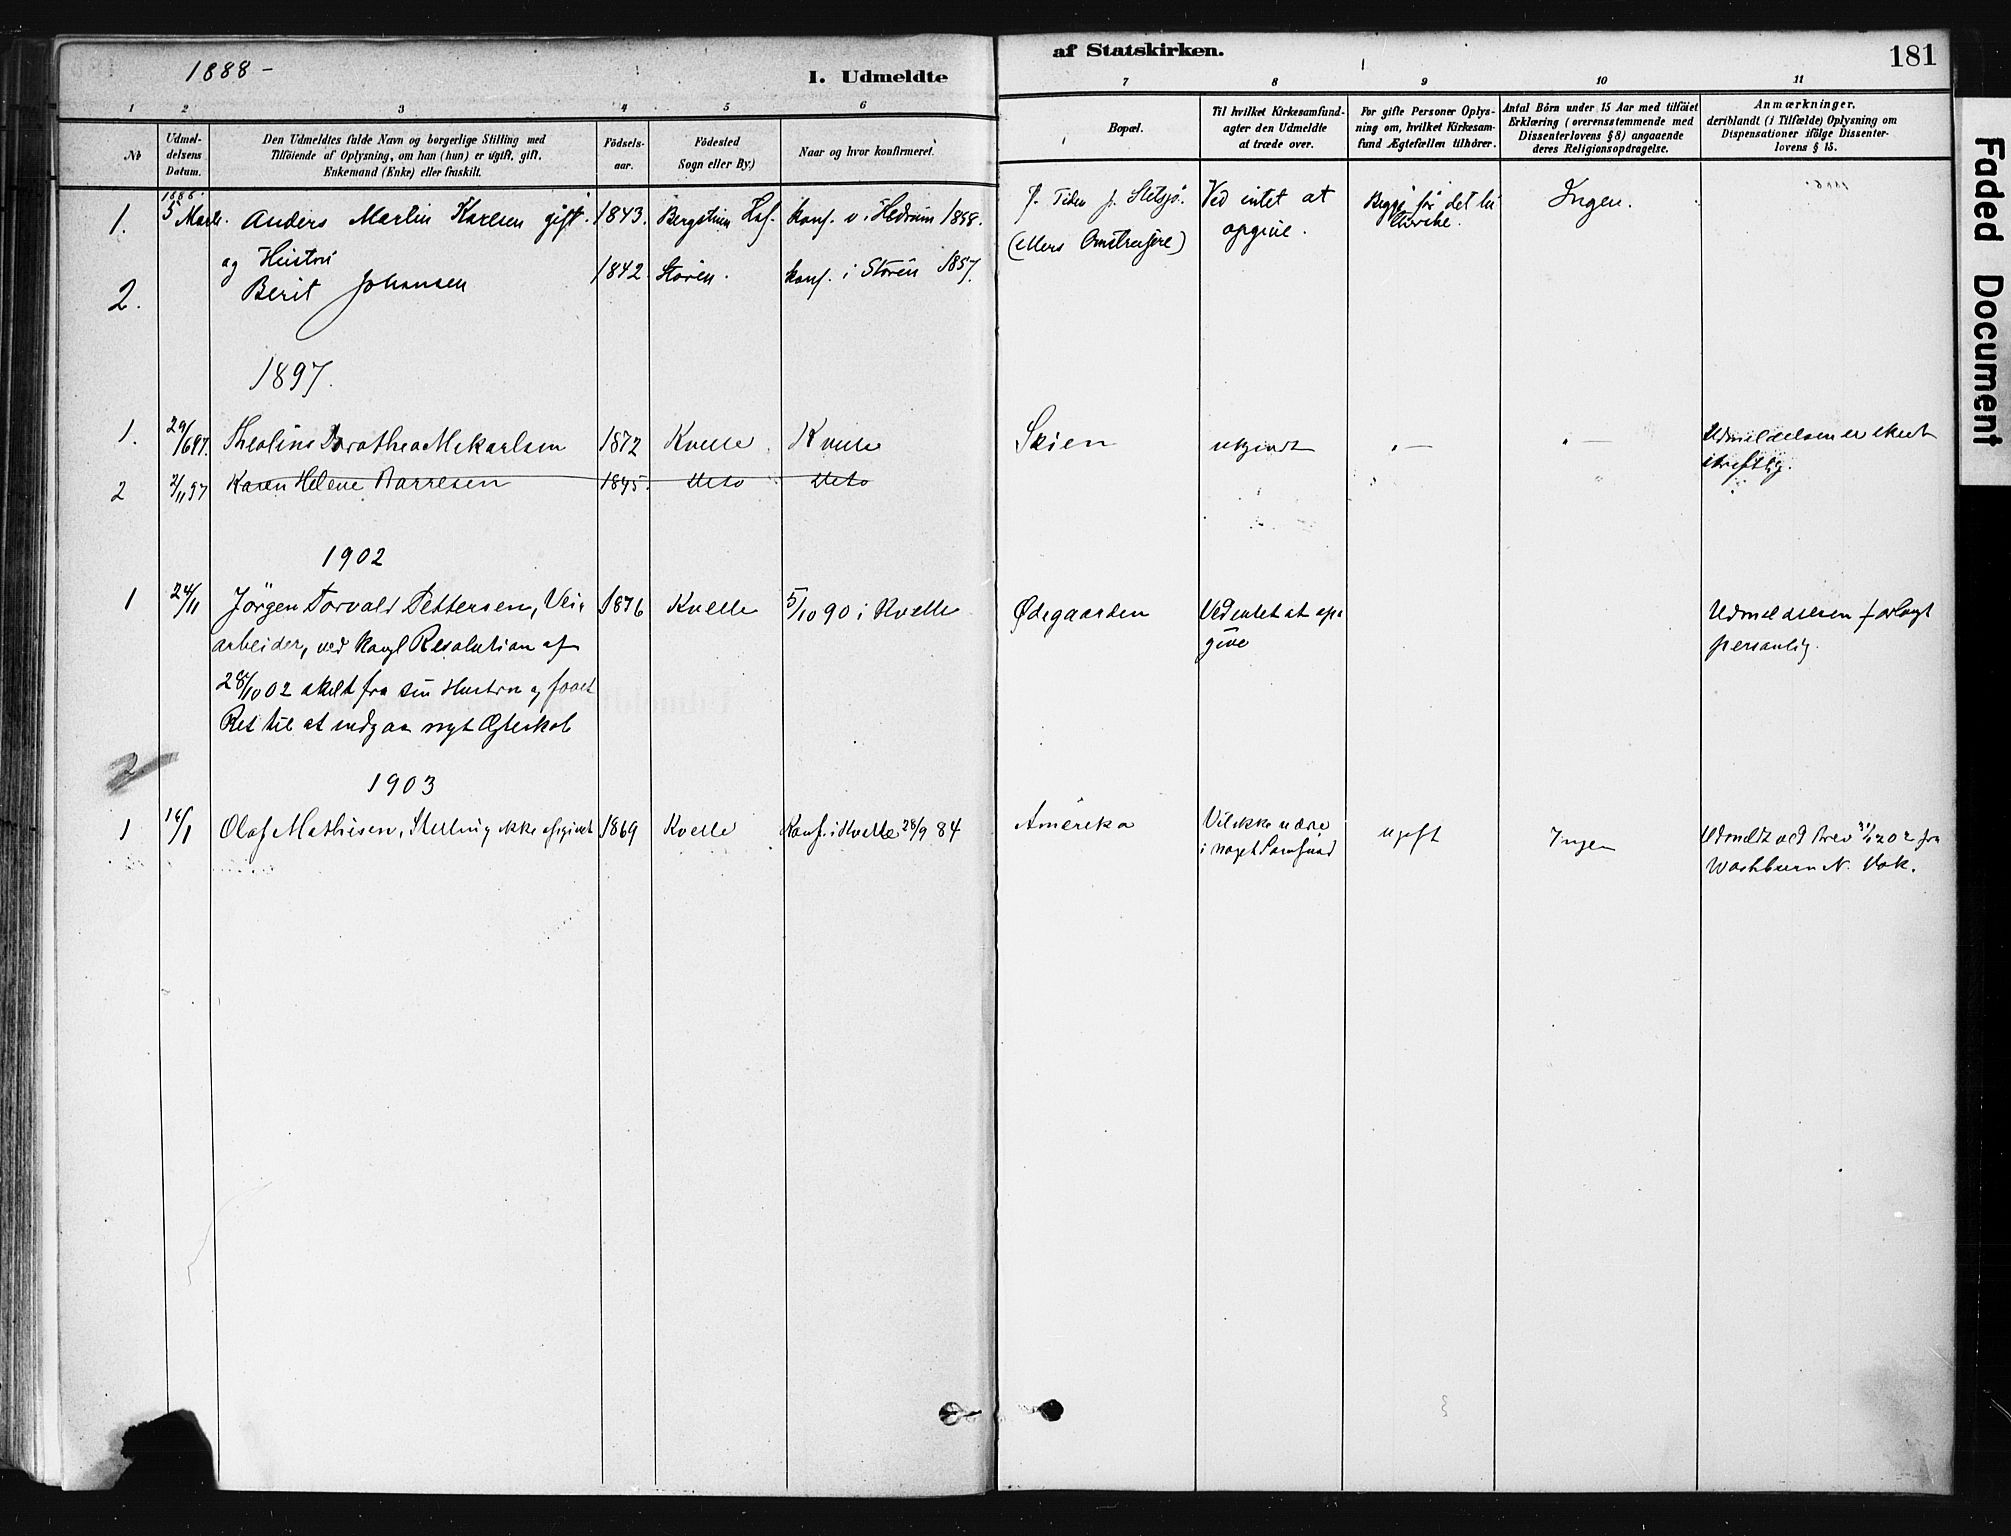 1888 -
I. Udmeldte
af Statskirken.
181
1 2 3 4 5 6 7 8 9 10 11
No
Udmeldelsens Datum.
Den Udmeldtes fulde Navn og borgerlige Stilling med
Tilföiende af Oplysning, om han (hun) er ugift, gift,
Enkemand (Enke) eller fraskilt.
Födselsaar.
Födested
Sogn eller By.)
Naar og hvor konfirmeret.
Bopæl.
Til hvilket Kirkesamfund-
agter den Udmeldte
at træde over.
For gifte Personer Oplys-
ning om, hvilket Kirkesam-
fund Ægtefællen tilhörer.
Antal Börn under 15 Aar med tilföiet
Erklæring (overensstemmende med
Dissenterlovens § 8) angaaende
deres Religionsopdragelse.
Anmærkninger,
deriblandt (i Tilfælde) Oplysning om
Dispensationer ifölge Dissenter-
lovens § 15.
1. 5 Marts. Anders Martin Karlsen gift. 1843. konf. i Hedrum 1858. Ved intet at Ingen.
opgive.
og Hustru
2. Berit Johansen 1842 Stören. konf. i Stören 1857.
1897.
1. 29/6 97. Dorothea 1872 Kvelle Kvelle Skien ubekjendt " — " — Udmeldelsen er skeet
skriftlig.
2 2/11 97 Karen Helene 1845. Dito Dito
1902
1 24/11 Jörgen Torvald Pettersen, Vei- 1876 Kvelle 5/10 90 i Kvelle Ødegaarden Ved intet at op- Udmeldelsen forlagt
arbeider, ved kongl Resolution af give personlig.
28/10 02 skilt fra sin Hustru og faaet
Ret til at indgaa nyt Ægteskab
2
1903
1 16/1 Olaf Mathisen, Stilling ikke opgivet 1869 Kvelle Konf. i Kvelle 28/9 84 Amerika Vil ikke være ugift Ingen Udmeldt ved Brev 31/12 02 fra
i noget Samfund Washburn N. Dak.
Faded Document